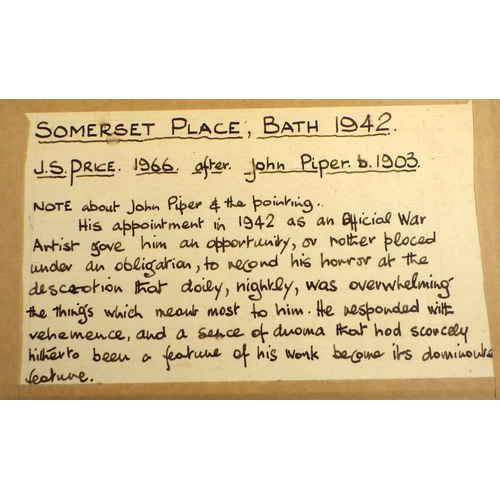 SOMERSET PLACE, BATH 1942.
J.S. PRICE. 1966. after. John Piper. b. 1903.
NOTE about John Piper & the painting.
His appointment in 1942 as an Official War
Artist gave him an opportunity, or rather placed
under an obligation, to record his horror at the
descration that daily, nightly, was overwhelming
the things which meant most to him. He responded with
vehemence, and a sence of drama that had scarcely
hitherto been a feature of his work become its dominante
feature.